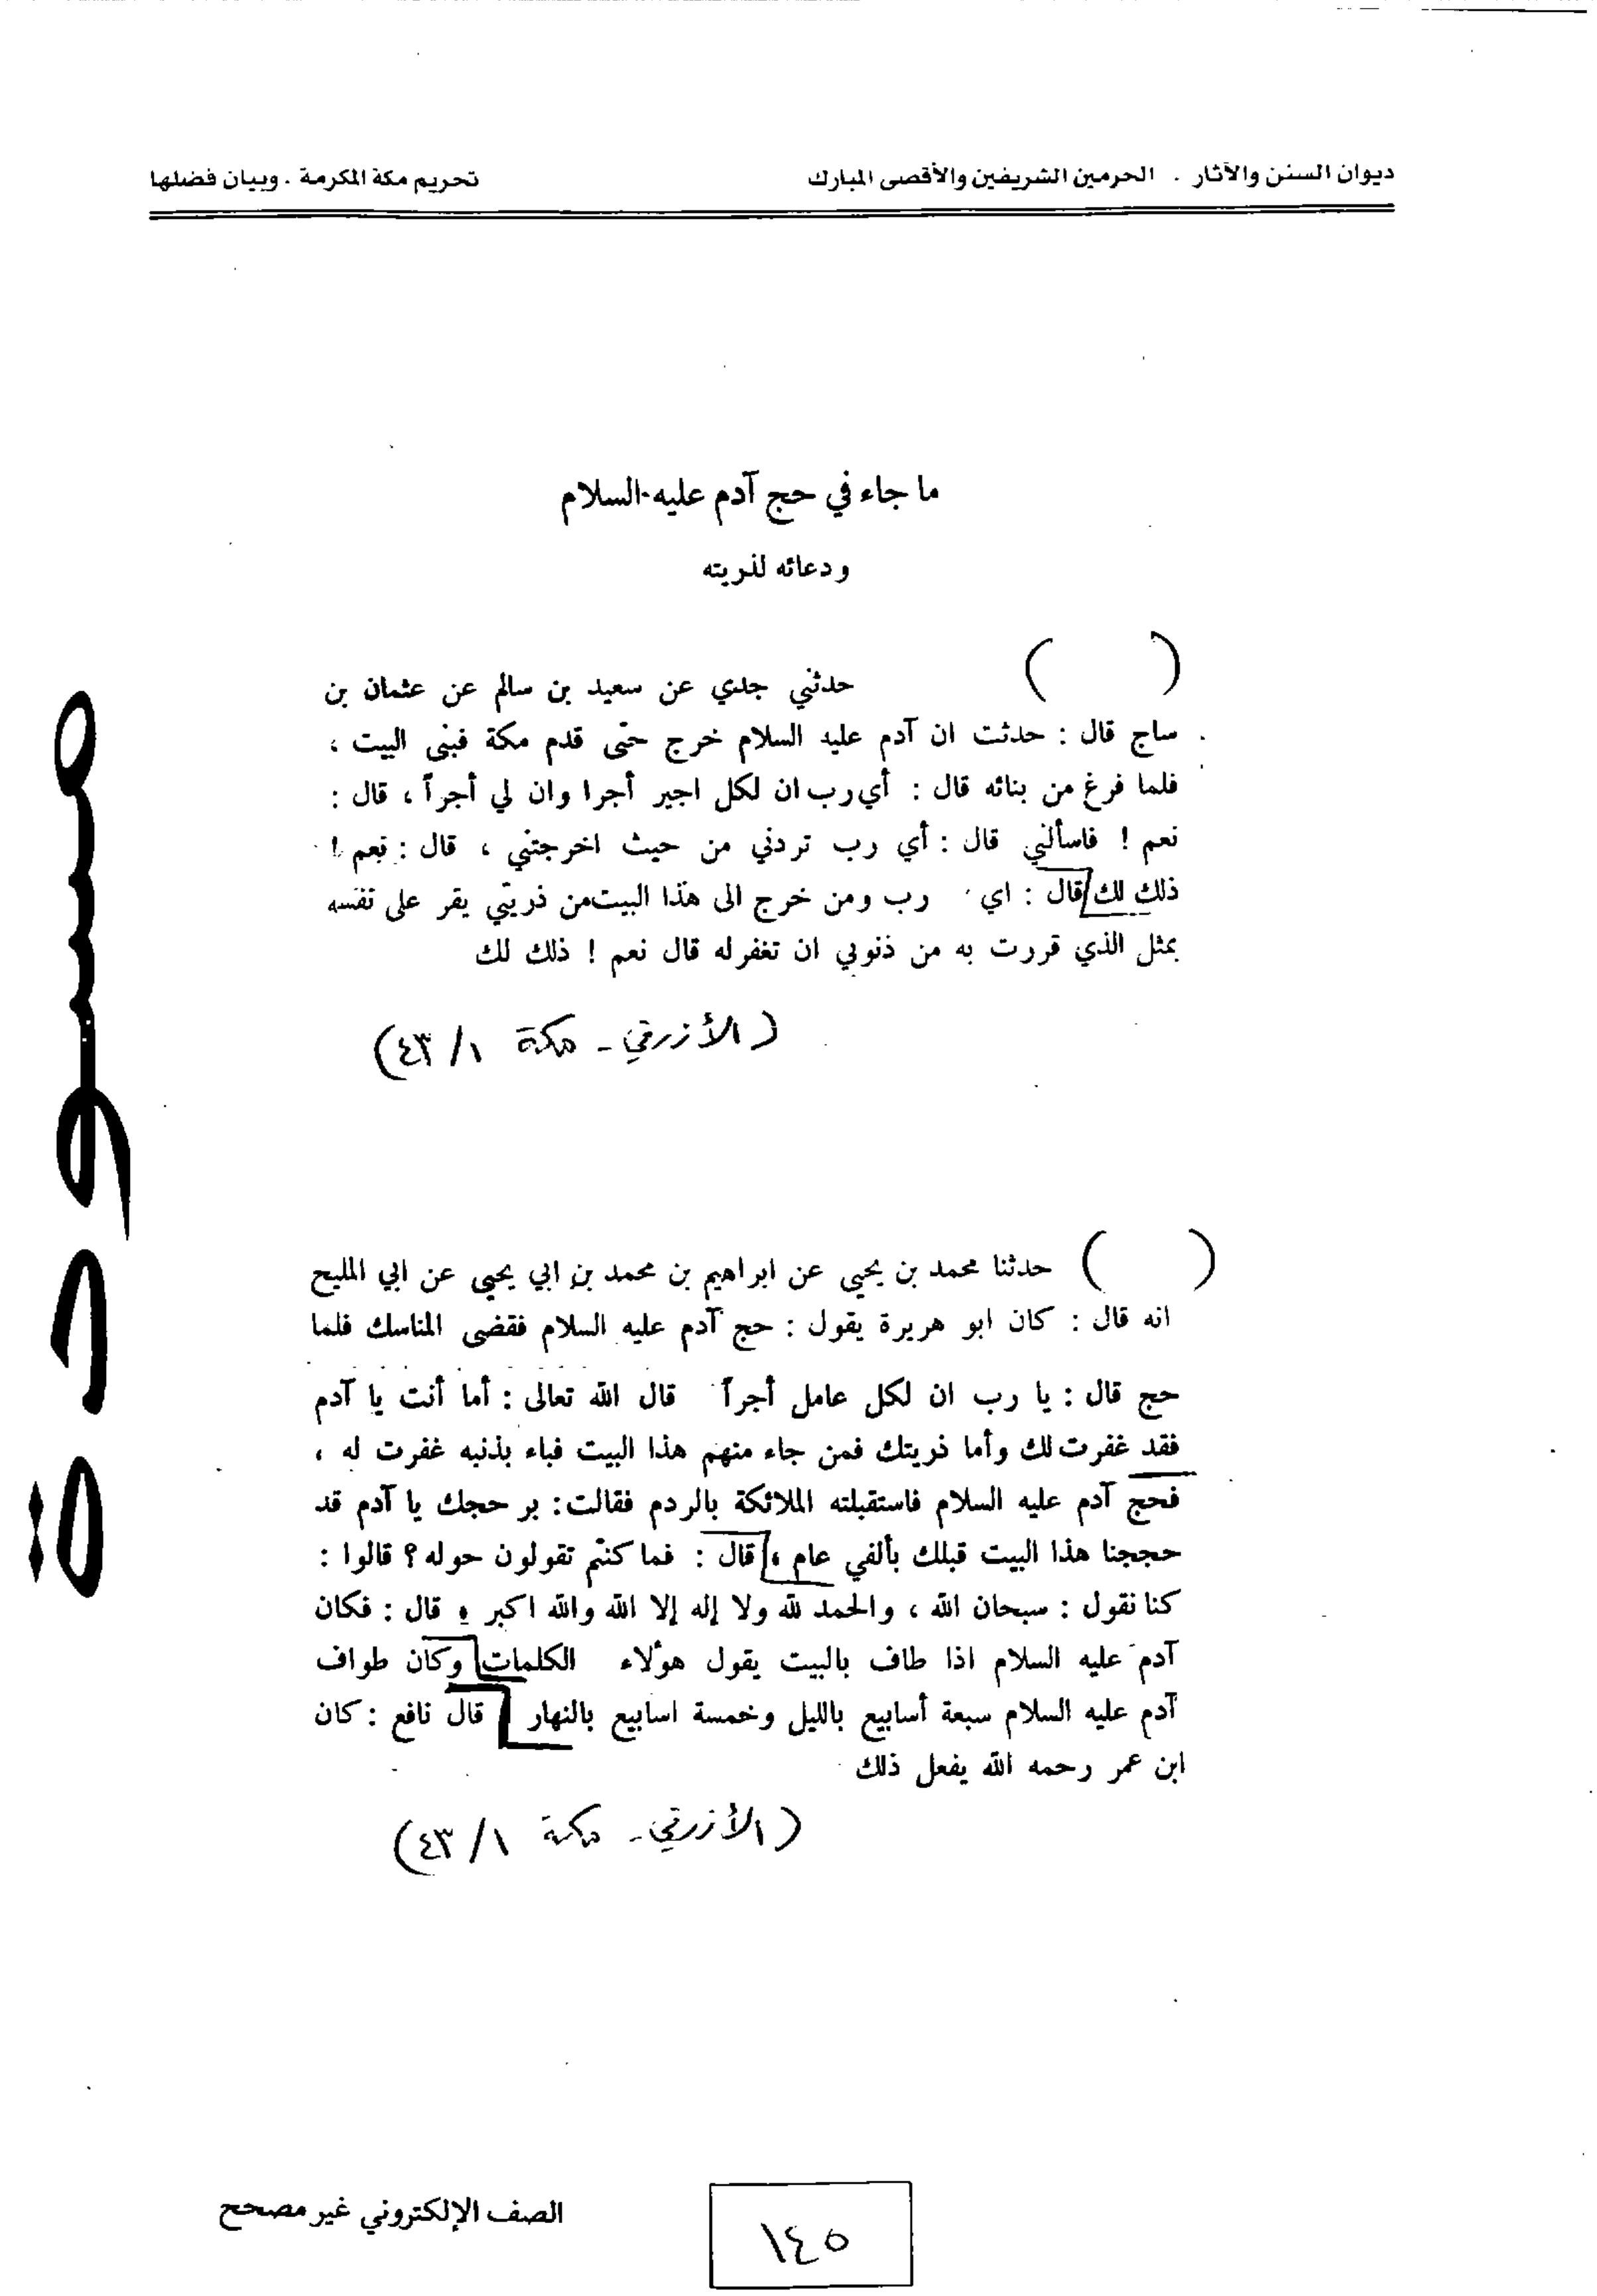 ديوان السنن والآثار . الحرمين الشريفين والأقصى المبارك تحريم مكة المكرمة . وبيان فضلها
ما جاء في حج آدم عليه السلام
ودعائه لذريته
( ) حدثني جدي عن سعيد بن سالم عن عثمان بن
ساج قال : حدثت ان آدم عليه السلام خرج حتى قدم مكة فبنى البيت ،
فلما فرغ من بنائه قال : أي رب ان لكل اجير أجرا وان لي أجراً ، قال :
نعم ! فاسألني قال : أي رب تردني من حيث اخرجتني ، قال : نعم !
ذلك لك قال : اي رب ومن خرج الى هذا البيت من ذريتي يقر على نفسه
بمثل الذي قررت به من ذنوبي ان تغفر له قال نعم ! ذلك لك
(الأزرقي - مكة ١/٤٣)
( ) حدثنا محمد بن يحيى عن ابراهيم بن محمد بن ابي يحيى عن ابي المليح
انه قال : كان ابو هريرة يقول : حج آدم عليه السلام فقضى المناسك فلما
حج قال : يا رب ان لكل عامل أجراً قال الله تعالى : أما أنت يا آدم
فقد غفرت لك وأما ذريتك فمن جاء منهم هذا البيت فباء بذنبه غفرت له ،
فحج آدم عليه السلام فاستقبلته الملائكة بالردم فقالت : بر حجك يا آدم قد
حججنا هذا البيت قبلك بألفي عام ، قال : فما كنتم تقولون حوله ؟ قالوا :
كنا نقول : سبحان الله ، والحمد لله ولا إله إلا الله والله اكبر ، قال : فكان
آدم عليه السلام اذا طاف بالبيت يقول هؤلاء الكلمات وكان طواف
آدم عليه السلام سبعة أسابيع بالليل وخمسة اسابيع بالنهار قال نافع : كان
ابن عمر رحمه الله يفعل ذلك
(الأزرقي - مكة ١/٤٣)
مسودة
الصف الإلكتروني غير مصحح
١٤٥